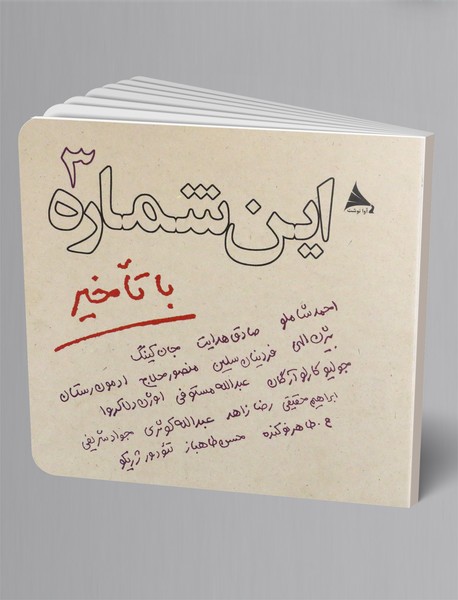 ۳
این شماره
آوا نوشت
با تأخیر
احمد شاملو صادق هدایت جان کینگ
بیژن الهی فردینان سلین منصور حلاج ادمون رستان
جولیو کارلو آرگان عبدالله مستوفی اوژن دلاکروا
ابراهیم حقیقی رضا زاهد عبدالله کوثری جواد شریفی
ع. طاهر فوکنده محسن طاهباز تئودور ژریکو